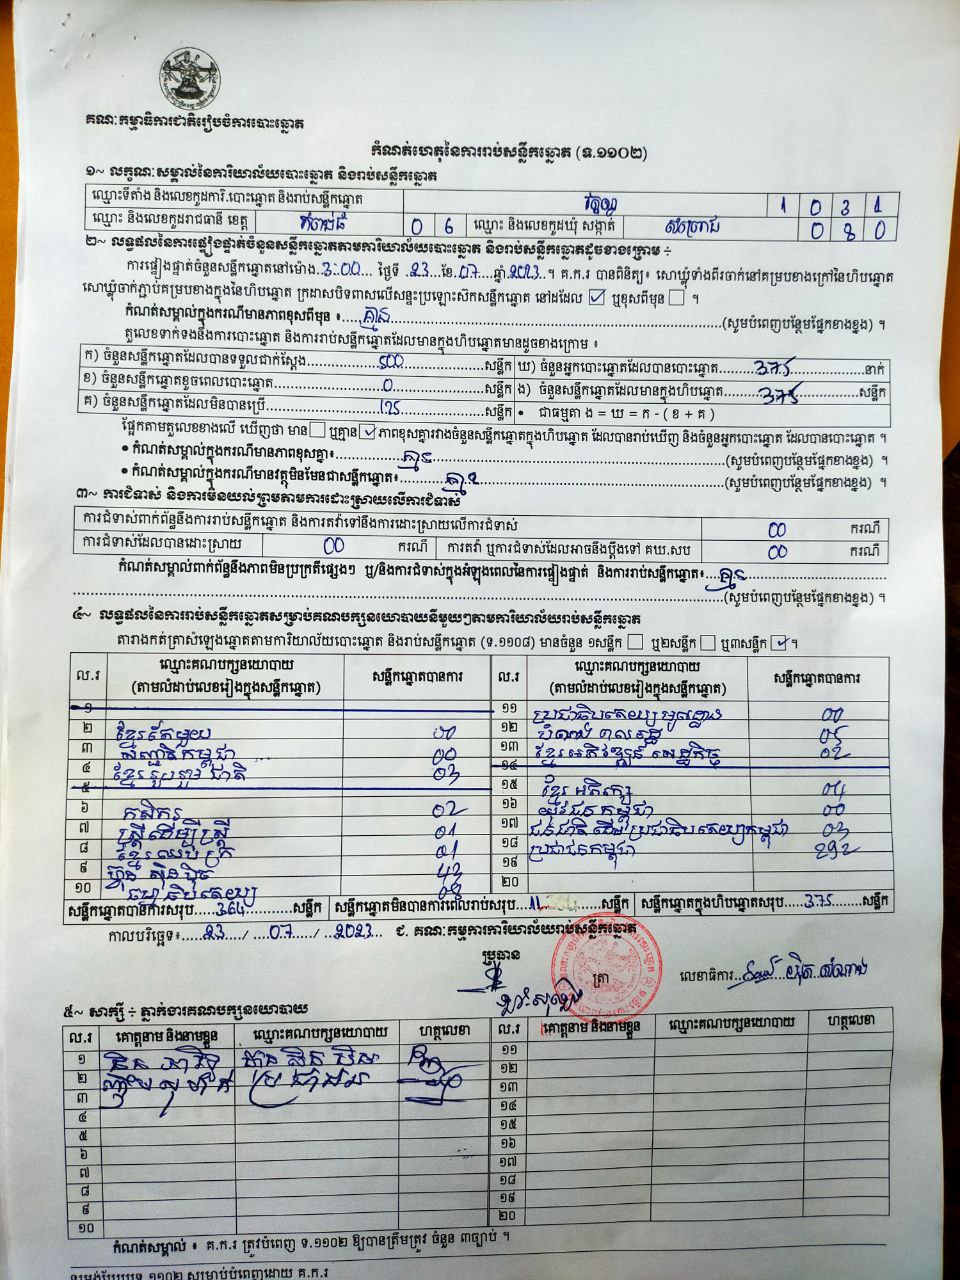 គណៈកម្មាធិការជាតិរៀបចំការបោះឆ្នោត
កំណត់ហេតុនៃការរាប់សន្លឹកឆ្នោត (ទ.១១០២)
១~ លក្ខណៈសម្គាល់នៃការិយាល័យបោះឆ្នោត និងរាប់សន្លឹកឆ្នោត
ឈ្មោះទីតាំង និងលេខកូដការិ.បោះឆ្នោត និងរាប់សន្លឹកឆ្នោត 1031
ឈ្មោះ និងលេខកូដរាជធានី ខេត្ត កំពង់ធំ 06 ឈ្មោះ និងលេខកូដឃុំ សង្កាត់ 080
២~ លទ្ធផលនៃការផ្ទៀងផ្ទាត់ចំនួនសន្លឹកឆ្នោតតាមការិយាល័យបោះឆ្នោត និងរាប់សន្លឹកឆ្នោតដូចខាងក្រោម ÷
ការផ្ទៀងផ្ទាត់ចំនួនសន្លឹកឆ្នោតនៅម៉ោង..3:00... ថ្ងៃទី .23..ខែ.07....ឆ្នាំ.2023.។ គ.ក.រ បានពិនិត្យ៖ សោឃ្លុំទាំងពីរចាក់នៅគម្របខាងក្រៅនៃហិបឆ្នោត
សោឃ្លុំចាក់ភ្ជាប់គម្របខាងក្នុងនៃហិបឆ្នោត ក្រដាសបិទពាសលើសន្ទះប្រឡោះស៊កសន្លឹកឆ្នោត នៅដដែល ☑ ឬខុសពីមុន ☐ ។
កំណត់សម្គាល់ក្នុងករណីមានភាពខុសពីមុន ៖.....គ្មាន.....(សូមបំពេញបន្ថែមផ្នែកខាងខ្នង) ។
តួលេខទាក់ទងនឹងការបោះឆ្នោត និងការរាប់សន្លឹកឆ្នោតដែលមានក្នុងហិបឆ្នោតមានដូចខាងក្រោម ៖
ក) ចំនួនសន្លឹកឆ្នោតដែលបានទទួលជាក់ស្តែង.....500.....សន្លឹក ឃ) ចំនួនអ្នកបោះឆ្នោតដែលបានបោះឆ្នោត.....375.....នាក់
ខ) ចំនួនសន្លឹកឆ្នោតខូចពេលបោះឆ្នោត.....0.....សន្លឹក ង) ចំនួនសន្លឹកឆ្នោតដែលមានក្នុងហិបឆ្នោត.....375.....សន្លឹក
គ) ចំនួនសន្លឹកឆ្នោតដែលមិនបានប្រើ.....125.....សន្លឹក • ជាធម្មតា ង = ឃ = ក - ( ខ + គ )
ផ្អែកតាមតួលេខខាងលើ ឃើញថា មាន ☐ ឬគ្មាន ☑ ភាពខុសគ្នារវាងចំនួនសន្លឹកឆ្នោតក្នុងហិបឆ្នោត ដែលបានរាប់ឃើញ និងចំនួនអ្នកបោះឆ្នោត ដែលបានបោះឆ្នោត ។
• កំណត់សម្គាល់ក្នុងករណីមានភាពខុសគ្នា៖.....គ្មាន.....(សូមបំពេញបន្ថែមផ្នែកខាងខ្នង) ។
• កំណត់សម្គាល់ក្នុងករណីមានវត្ថុមិនមែនជាសន្លឹកឆ្នោត៖.....គ្មាន.....(សូមបំពេញបន្ថែមផ្នែកខាងខ្នង) ។
៣~ ការជំទាស់ និងការមិនយល់ព្រមតាមការដោះស្រាយលើការជំទាស់
ការជំទាស់ពាក់ព័ន្ធនឹងការរាប់សន្លឹកឆ្នោត និងការតវ៉ាទៅនឹងការដោះស្រាយលើការជំទាស់ 00 ករណី
ការជំទាស់ដែលបានដោះស្រាយ 00 ករណី ការតវ៉ា ឬការជំទាស់ដែលអាចនឹងប្តឹងទៅ គឃ.សប 00 ករណី
កំណត់សម្គាល់ពាក់ព័ន្ធនឹងភាពមិនប្រក្រតីផ្សេងៗ ឬ/និងការជំទាស់ក្នុងអំឡុងពេលនៃការផ្ទៀងផ្ទាត់ និងការរាប់សន្លឹកឆ្នោត៖...គ្មាន.....
.....(សូមបំពេញបន្ថែមផ្នែកខាងខ្នង) ។
៤~ លទ្ធផលនៃការរាប់សន្លឹកឆ្នោតសម្រាប់គណបក្សនយោបាយនីមួយៗតាមការិយាល័យរាប់សន្លឹកឆ្នោត
តារាងកត់ត្រាសំឡេងឆ្នោតតាមការិយាល័យបោះឆ្នោត និងរាប់សន្លឹកឆ្នោត (ទ.១១០៨) មានចំនួន ១សន្លឹក ☐ ឬ២សន្លឹក ☐ ឬ៣សន្លឹក ☑ ។
ល.រ ឈ្មោះគណបក្សនយោបាយ (តាមលំដាប់លេខរៀងក្នុងសន្លឹកឆ្នោត) សន្លឹកឆ្នោតបានការ ល.រ ឈ្មោះគណបក្សនយោបាយ (តាមលំដាប់លេខរៀងក្នុងសន្លឹកឆ្នោត) សន្លឹកឆ្នោតបានការ
១ ១១ ប្រជាធិបតេយ្យមូលដ្ឋាន 00
២ ខ្មែរតែមួយ 00 ១២
៣ សញ្ជាតិកម្ពុជា 00 ១៣ ខ្មែរអភិវឌ្ឍន៍សេដ្ឋកិច្ច 02
៤ ខ្មែររួបរួមជាតិ 03 ១៤
៥ ១៥ ខ្មែរអភិរក្ស 04
៦ កសិករ 02 ១៦ យុវជនកម្ពុជា 00
៧ ស្ត្រីដើម្បីស្ត្រី 01 ១៧ ជនជាតិដើមប្រជាធិបតេយ្យកម្ពុជា 03
៨ ខ្មែរឈប់ក្រ 01 ១៨ ប្រជាជនកម្ពុជា 292
៩ ហ៊្វុនស៊ិនប៉ិច 43 ១៩
១០ ធម្មាធិបតេយ្យ 08 ២០
សន្លឹកឆ្នោតបានការសរុប.....364.....សន្លឹក សន្លឹកឆ្នោតមិនបានការពេលរាប់សរុប...11...សន្លឹក សន្លឹកឆ្នោតក្នុងហិបឆ្នោតសរុប.....375.....សន្លឹក
កាលបរិច្ឆេទ៖.....23...../.....07...../.....2023..... ជ. គណៈកម្មការការិយាល័យរាប់សន្លឹកឆ្នោត
ប្រធាន ត្រា លេខាធិការ
៥~ សាក្សី ÷ ភ្នាក់ងារគណបក្សនយោបាយ
ល.រ គោត្តនាម និងនាមខ្លួន ឈ្មោះគណបក្សនយោបាយ ហត្ថលេខា ល.រ គោត្តនាម និងនាមខ្លួន ឈ្មោះគណបក្សនយោបាយ ហត្ថលេខា
១ ហ៊្វុនស៊ិនប៉ិច ១១
២ ប្រជាជន ១២
៣ ១៣
៤ ១៤
៥ ១៥
៦ ១៦
៧ ១៧
៨ ១៨
៩ ១៩
១០ ២០
កំណត់សម្គាល់ ៖ គ.ក.រ ត្រូវបំពេញ ទ.១១០២ ឱ្យបានត្រឹមត្រូវ ចំនួន ៣ច្បាប់ ។
ទម្រង់បែបបទ ១១០២ សម្រាប់បំពេញដោយ គ.ក.រ